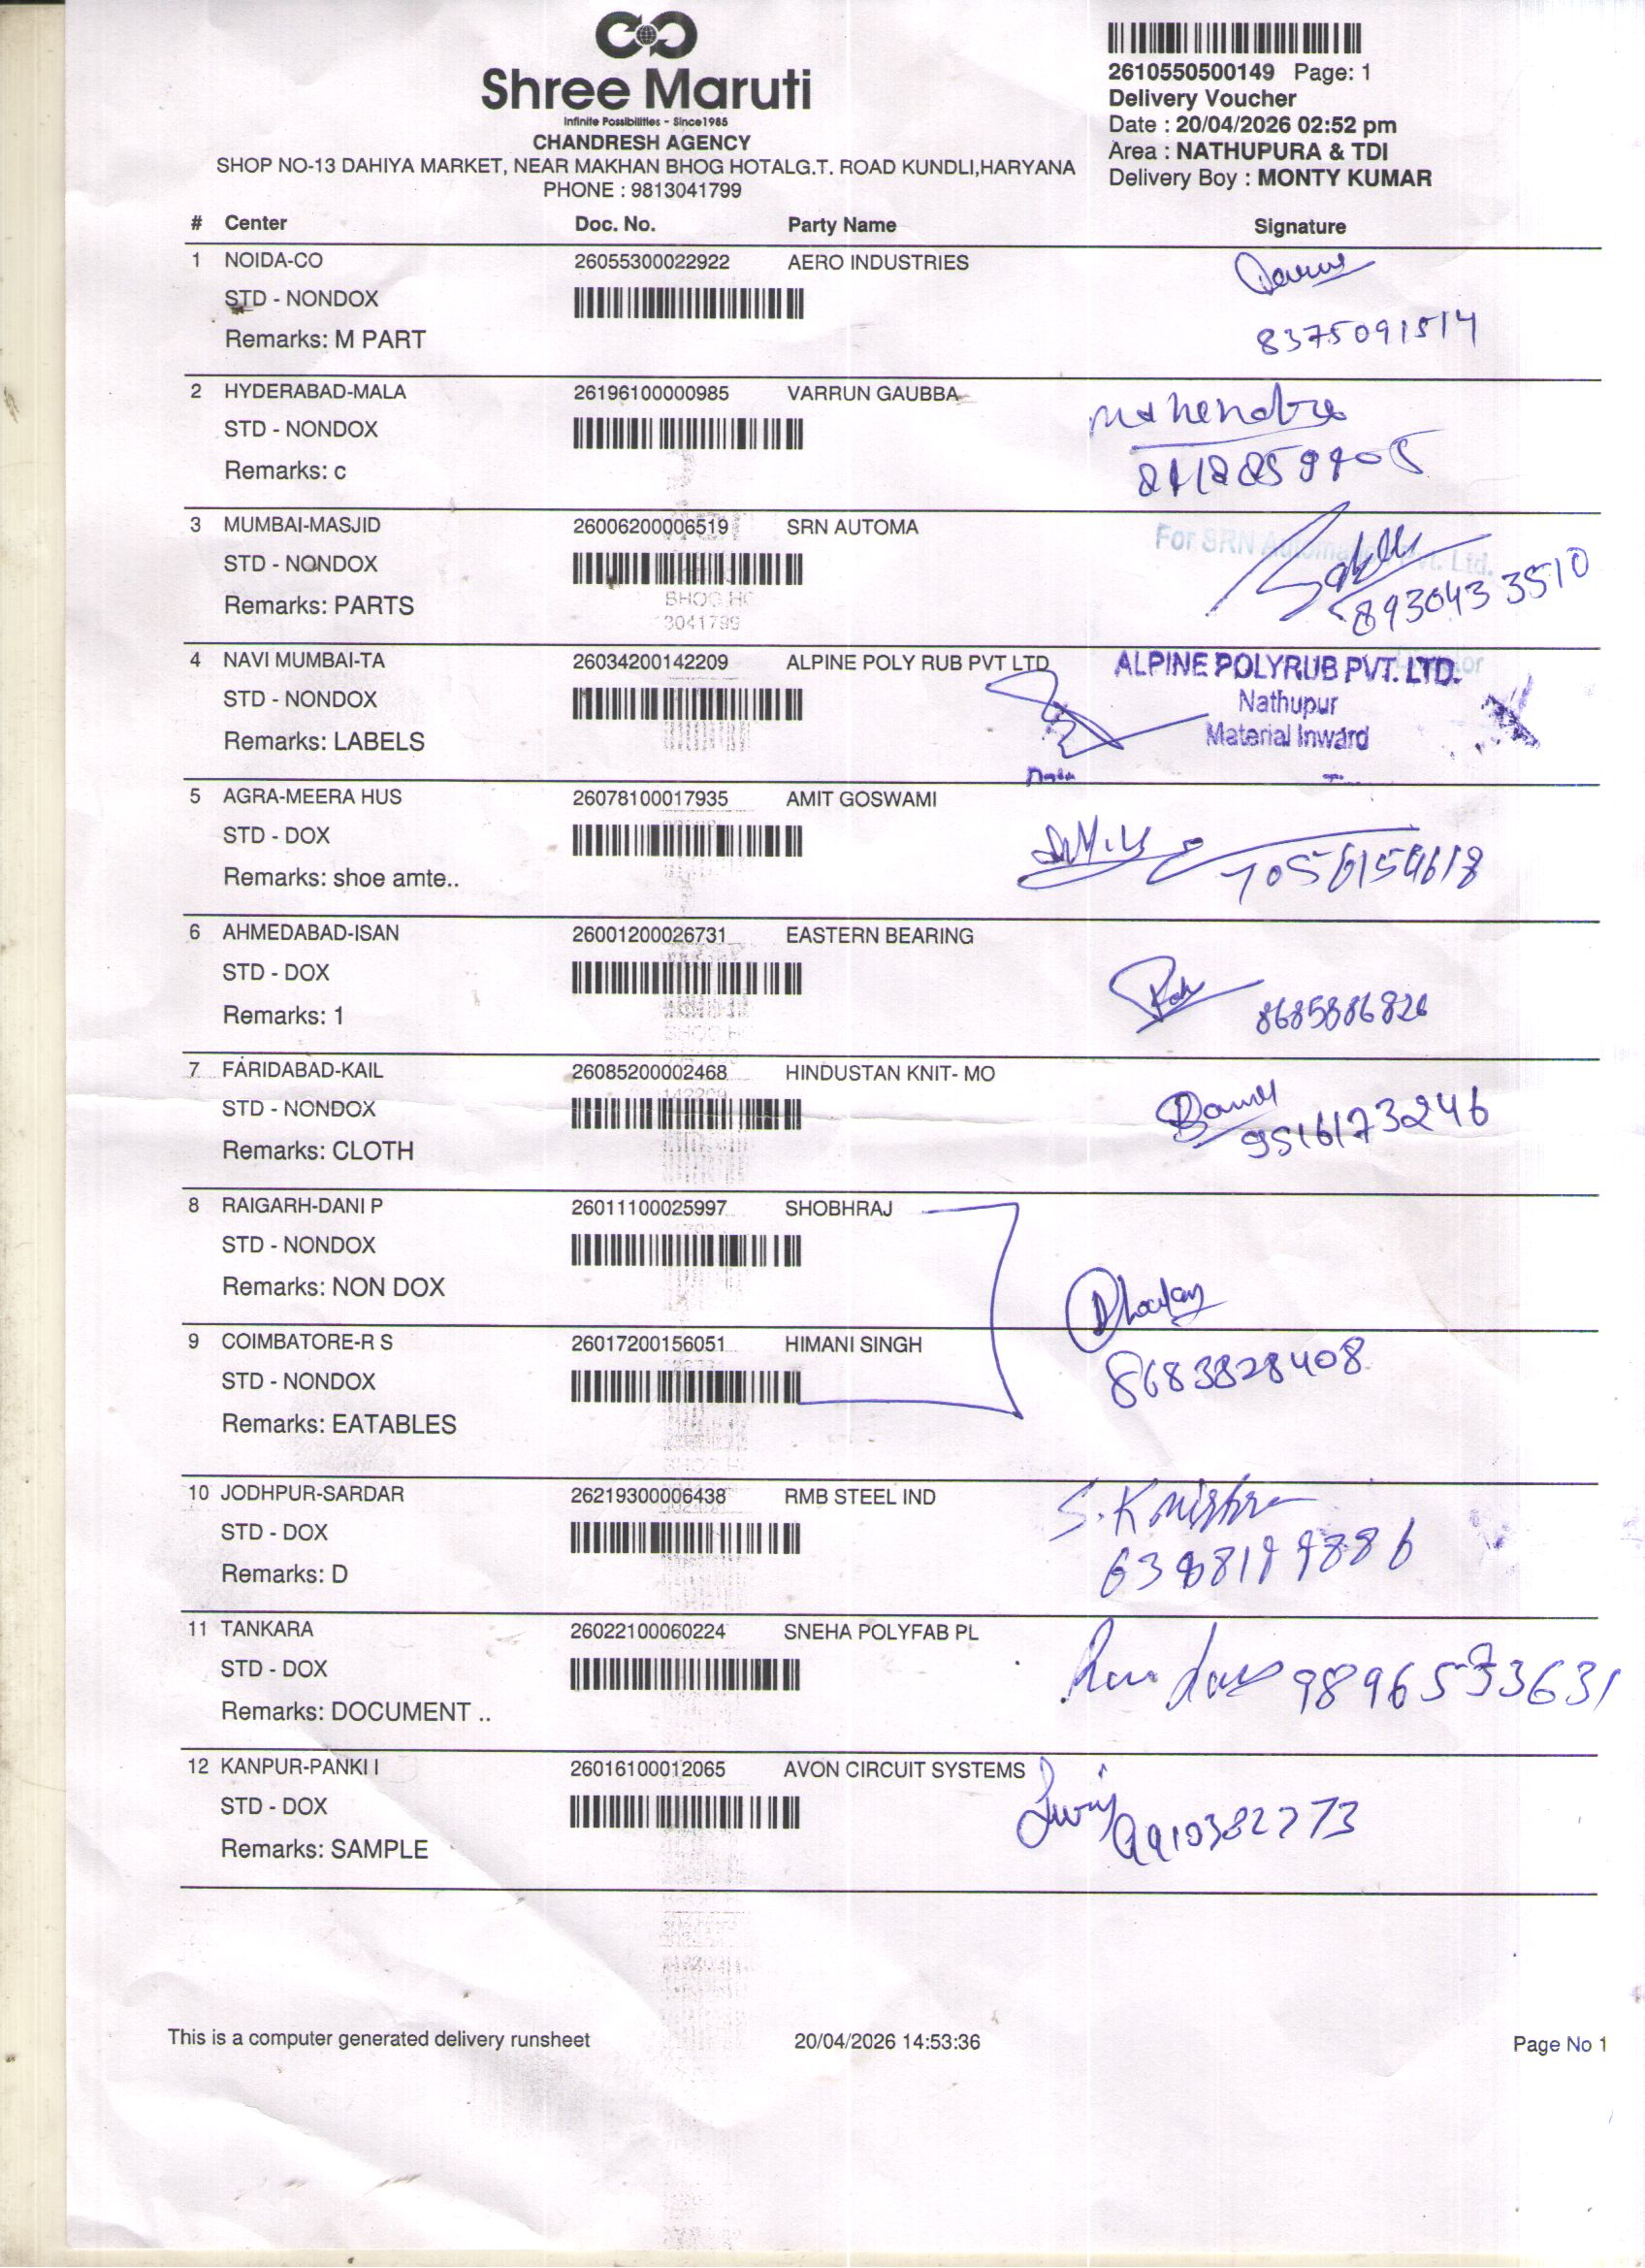 Shree Maruti
Infinite Possibilities - Since1985
CHANDRESH AGENCY
SHOP NO-13 DAHIYA MARKET, NEAR MAKHAN BHOG HOTALG.T. ROAD KUNDLI,HARYANA
PHONE : 9813041799
2610550500149 Page: 1
Delivery Voucher
Date : 20/04/2026 02:52 pm
Area : NATHUPURA & TDI
Delivery Boy : MONTY KUMAR
# Center Doc. No. Party Name Signature
1 NOIDA-CO 26055300022922 AERO INDUSTRIES
STD - NONDOX
Remarks: M PART 8375091514
2 HYDERABAD-MALA 26196100000985 VARRUN GAUBBA Mahendra
STD - NONDOX
Remarks: c
3 MUMBAI-MASJID 26006200006519 SRN AUTOMA For SRN Automation Pvt. Ltd.
STD - NONDOX
Remarks: PARTS 8930433510
BHOG HO
3041799
4 NAVI MUMBAI-TA 26034200142209 ALPINE POLY RUB PVT LTD ALPINE POLYRUB PVT. LTD.
STD - NONDOX Nathupur
Remarks: LABELS Material Inward
5 AGRA-MEERA HUS 26078100017935 AMIT GOSWAMI
STD - DOX
Remarks: shoe amte..
6 AHMEDABAD-ISAN 26001200026731 EASTERN BEARING
STD - DOX
Remarks: 1 8685886826
7 FARIDABAD-KAIL 26085200002468 HINDUSTAN KNIT- MO
STD - NONDOX 9516173246
Remarks: CLOTH
8 RAIGARH-DANI P 26011100025997 SHOBHRAJ
STD - NONDOX
Remarks: NON DOX
9 COIMBATORE-R S 26017200156051 HIMANI SINGH
STD - NONDOX 8683828408
Remarks: EATABLES
10 JODHPUR-SARDAR 26219300006438 RMB STEEL IND S.K mishra
STD - DOX
Remarks: D
11 TANKARA 26022100060224 SNEHA POLYFAB PL
STD - DOX
Remarks: DOCUMENT ..
12 KANPUR-PANKI I 26016100012065 AVON CIRCUIT SYSTEMS
STD - DOX 9910382773
Remarks: SAMPLE
This is a computer generated delivery runsheet 20/04/2026 14:53:36 Page No 1